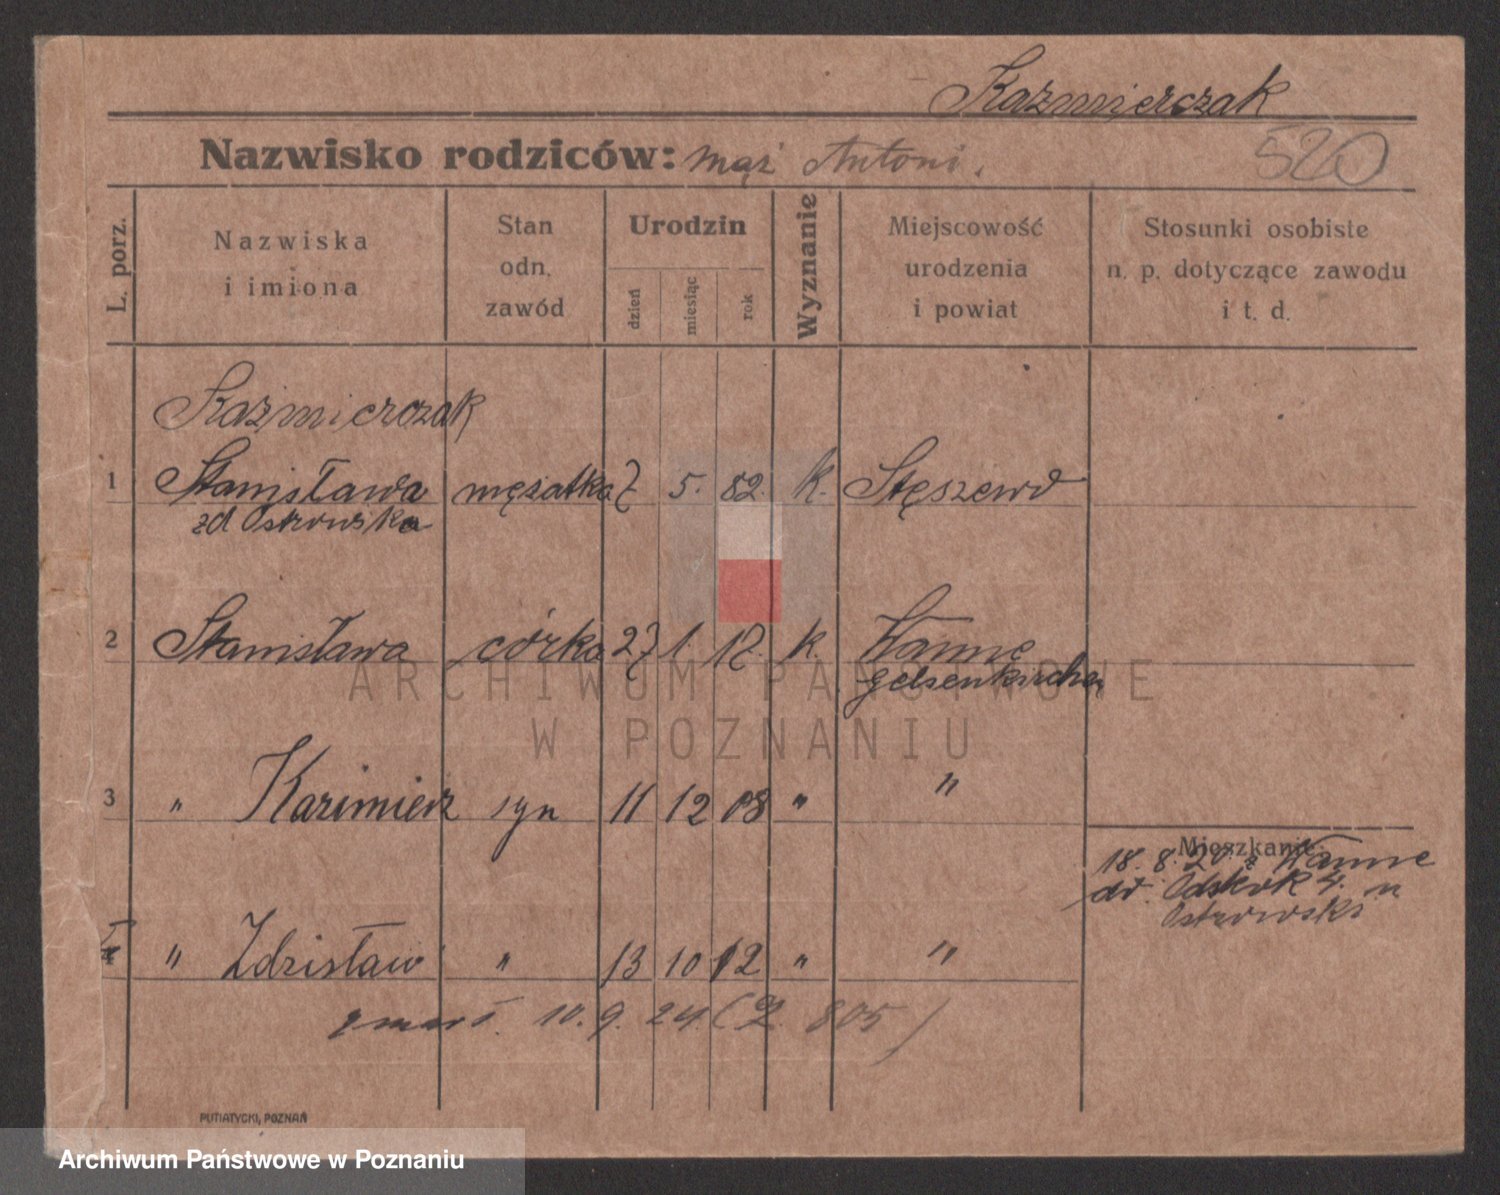 Kaźmierczak
Nazwisko rodziców: mąż Antoni.
520
L. porz.
Nazwiska
i imiona
Stan
odn.
zawód
Urodzin
dzień
miesiąc
rok
Wyznanie
Miejscowość
urodzenia
i powiat
Stosunki osobiste
n. p. dotyczące zawodu
i t. d.
Kaźmierczak
1 Stanisława mężatka 7 5. 82. k. Stęszewo
zd Ostrowska
2 Stanisława córka 27 1. 17. k. Wanne
Gelsenkirchen
3 " Kazimierz syn 11 12 08 " "
Mieszkanie:
18. 8. 20. z Wanne
do Odskok 4. u
Ostrowski
" Zdzisław " 13 10 12 " "
zmarł. 10. 9. 24. (Z. 805)
PUTIATYCKI, POZNAŃ
ARCHIWUM PAŃSTWOWE
W POZNANIU
Archiwum Państwowe w Poznaniu